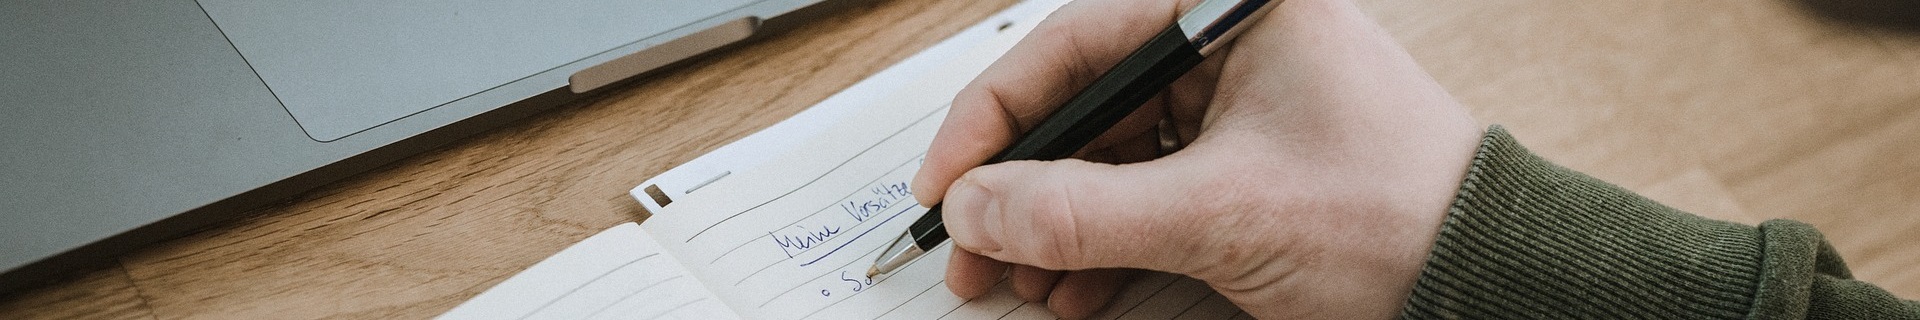 Meine Vorsätze
• So